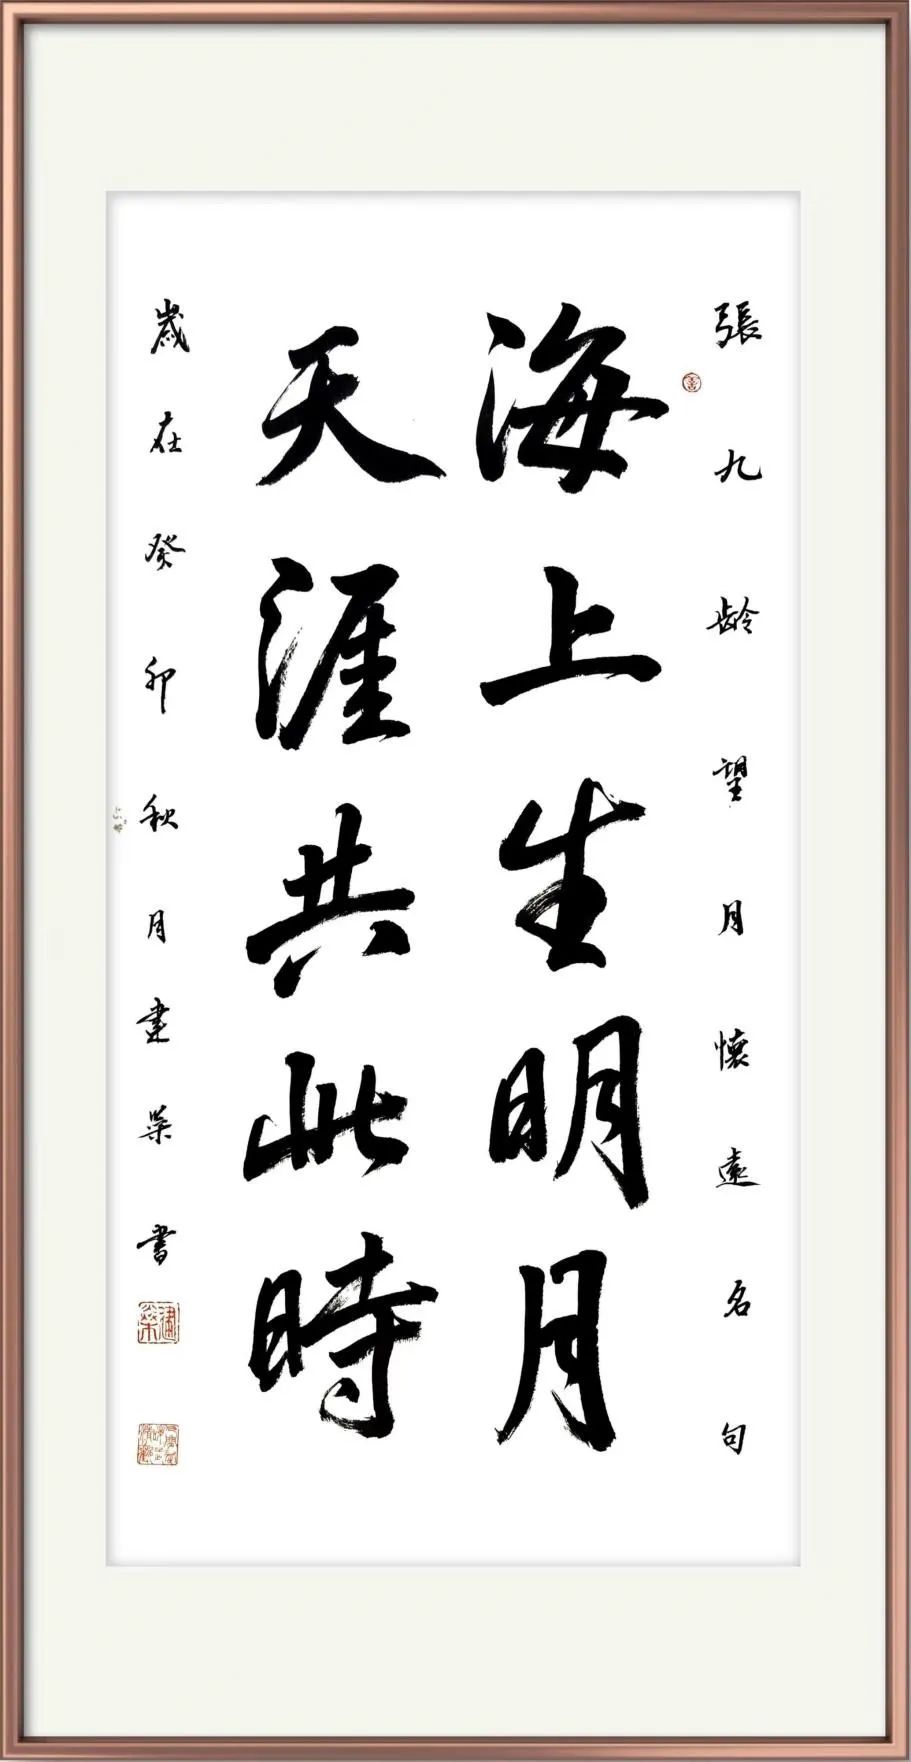 張九龄望月懷遠名句
海上生明月
天涯共此時
歲在癸卯秋月建榮書
建榮